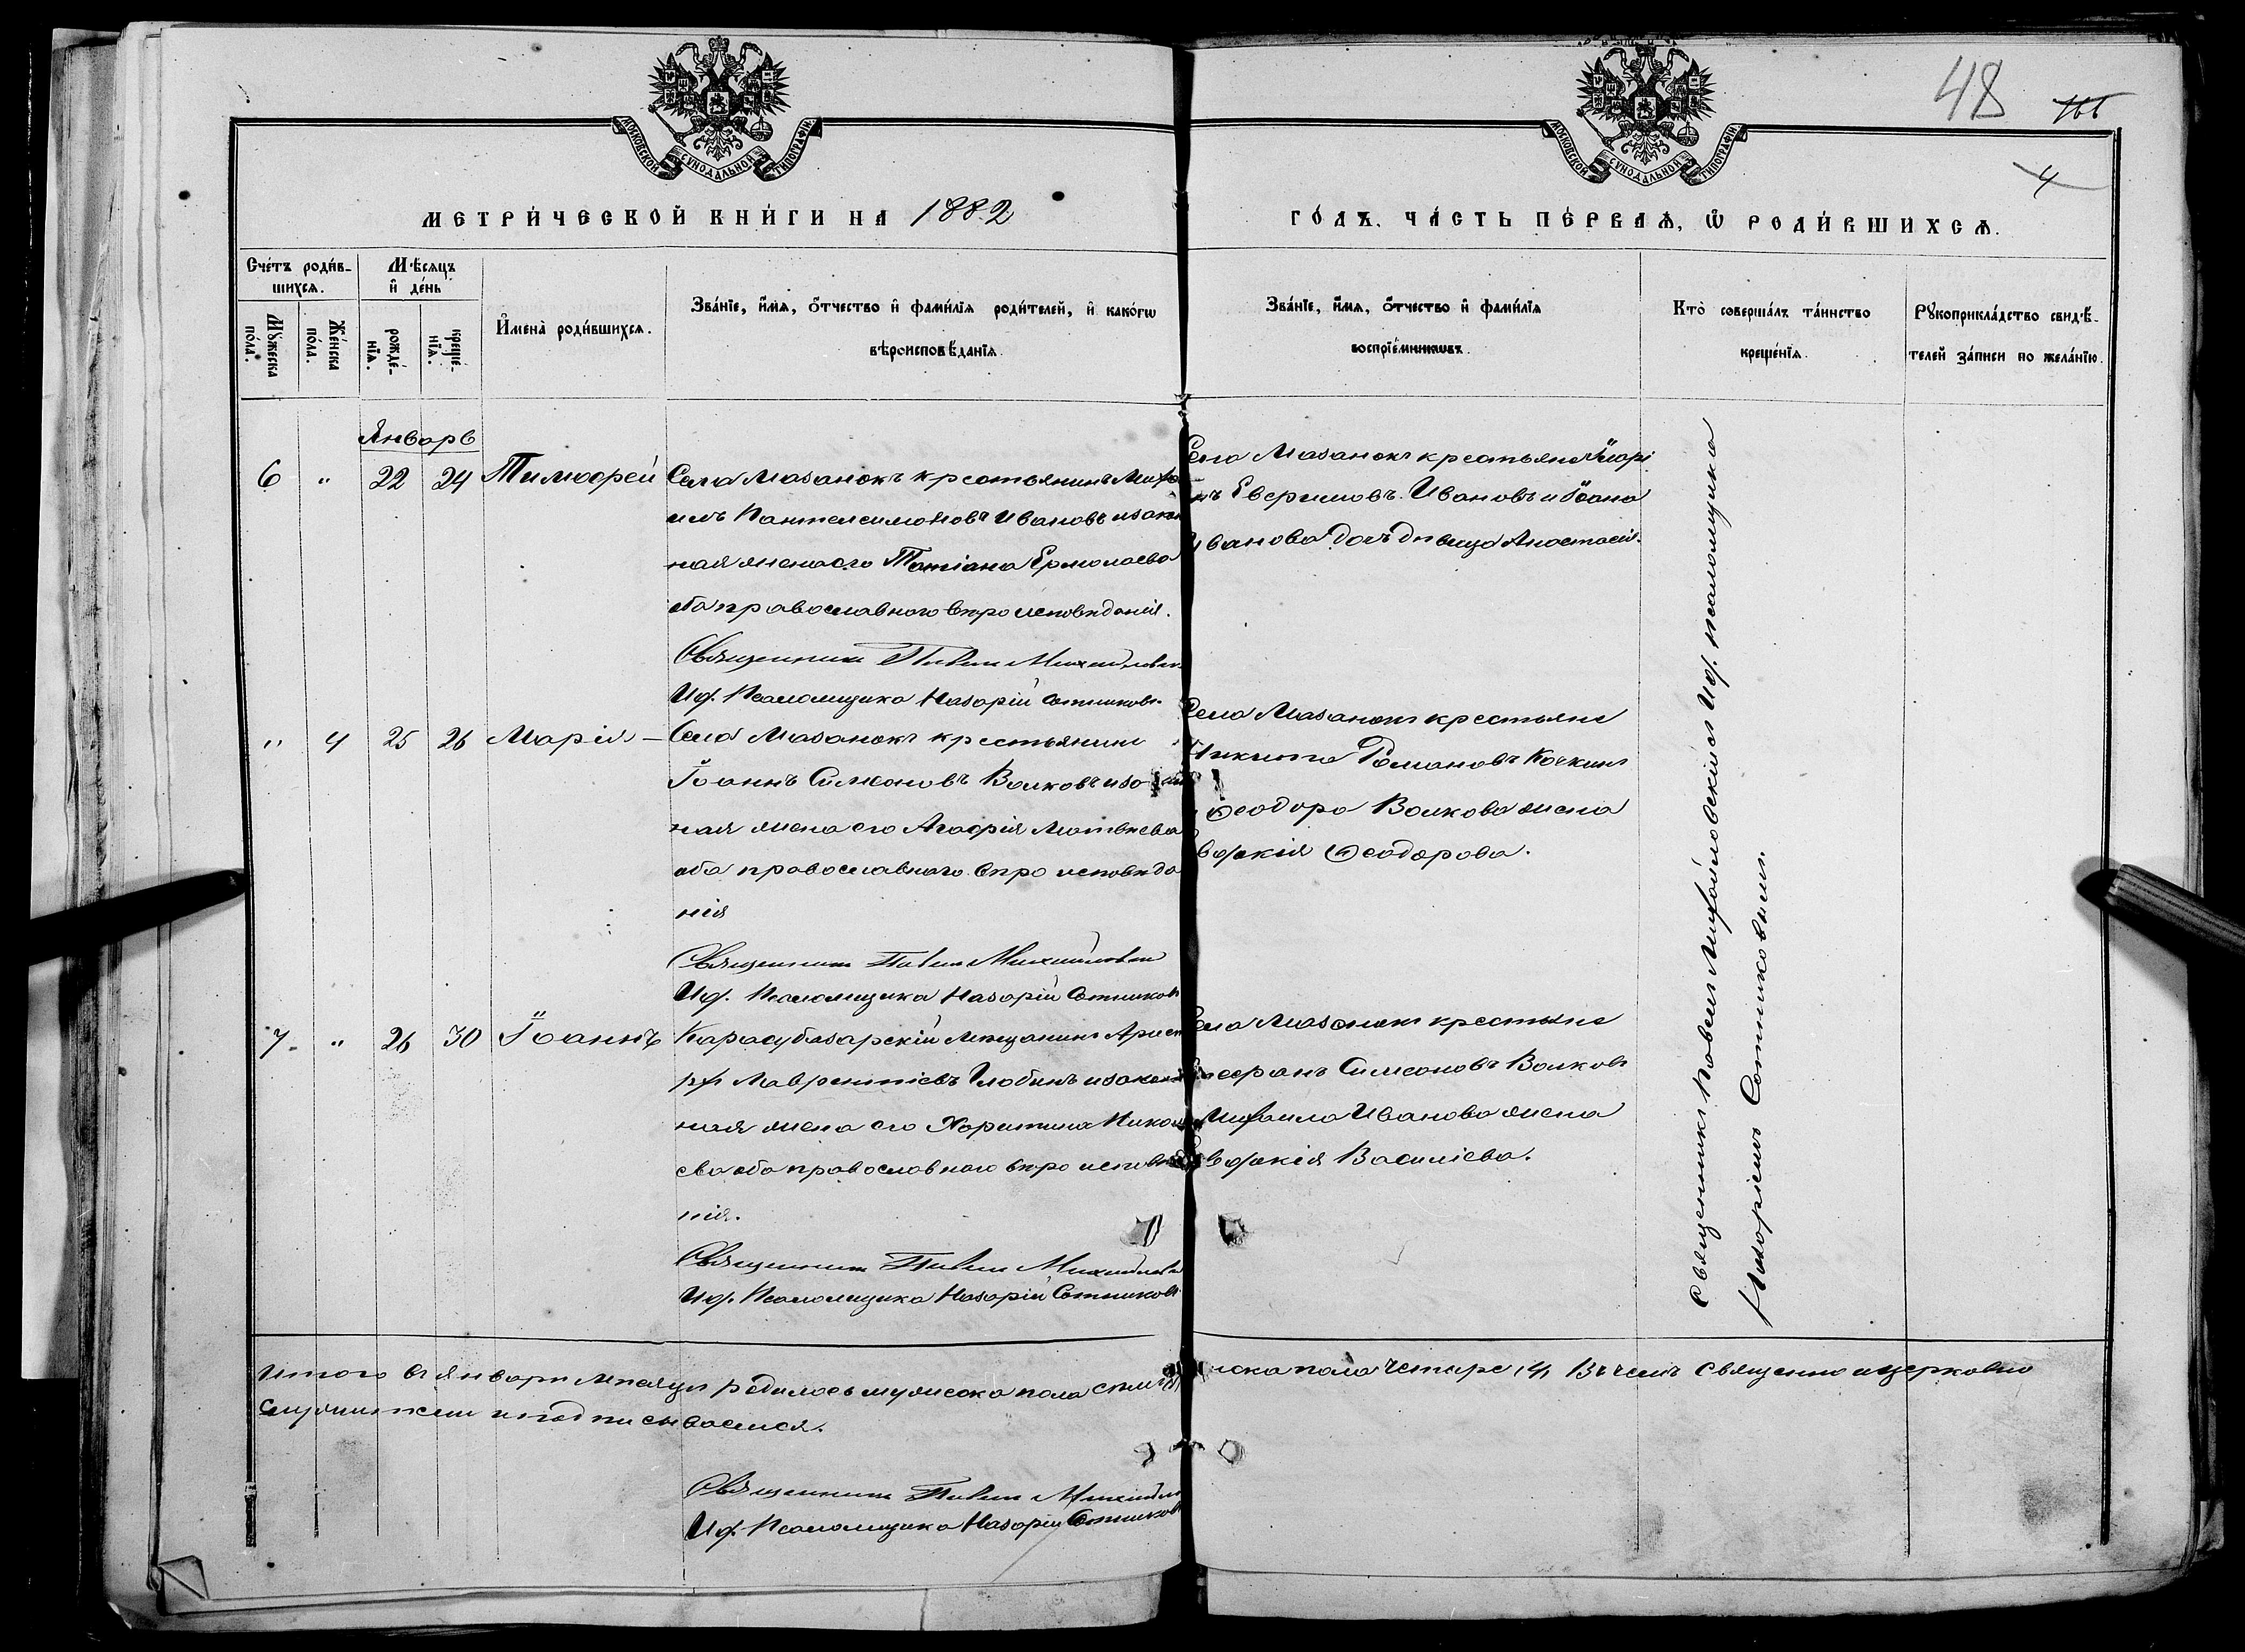 МОСКОВСКОЙ СУНОДАЛЬНОЙ ТИПОГРАФІИ
МОСКОВСКОЙ СУНОДАЛЬНОЙ ТИПОГРАФІИ
48
4
МЕТРИ́ЧЕСКОЙ КНИ́ГИ НА 1882
ГО́ДЪ. ЧА́СТЬ ПЕ́РВАѦ, Ѿ РОДИ́ВШИХСѦ.
Сче́тъ роди́в-
шихсѧ.
Мꙋ́жеска по́ла.
Же́нска по́ла.
Мѣ́сѧцъ
и҆ де́нь
рожде́-
нїѧ.
креще́-
нїѧ.
И҆мена̀ роди́вшихсѧ.
Зва́нїе, и҆́мѧ, ѻ҆́тчество и҆ фами́лїѧ роди́телей, и҆ како́гѡ
вѣроисповѣ́данїѧ.
Зва́нїе, и҆́мѧ, ѻ҆́тчество и҆ фами́лїѧ
воспрїе́мникѡвъ.
Кто̀ соверша́лъ та́инство
креще́нїѧ.
Рꙋкоприкла́дство свидѣ́-
телей за́писи по жела́нїю.
Январь
6 " 22 24 Тимоѳей
Села Мазанокъ крестьянинъ Миха
илъ Пантелеимоновъ Ивановъ и закон
ная жена его Татіана Ермолаева
оба православного вѣроисповѣданія.
Священникъ Павелъ Михайловскій
И. д. Псаломщика Назарій Сотниковъ.
Села Мазанокъ крестьяне
Евфимовъ Ивановъ и Іоана
Иванова дочь дѣвица Анастасія.
" 4 25 26 Марія —
Села Мазанокъ крестьянинъ
Іоаннъ Симеоновъ Волковъ и закон
ная жена его Агафія Матвѣева
оба православного вѣро исповѣда
нія
Священникъ Павелъ Михайловскій
И. д. Псаломщика Назарій Сотниковъ
Села Мазанокъ крестьяне
Никита Романовъ Кочкинъ
и Ѳеодора Волкова жена
Евдокія Ѳеодорова.
7. " 26 30 Іоаннъ
Карасубазарскій Мѣщанинъ
Лаврентіевъ Глобинъ и закон
ная жена его Харитина Никола
ева оба православного вѣро исповѣда
нія.
Священникъ Павелъ Михайловскій
И. д. Псаломщика Назарій Сотниковъ
Села Мазанокъ крестьяне
Стефанъ Симеоновъ Волковъ
и Михаила Иванова жена
Евдокія Василіева.
Священникъ Павелъ Михайловскій и И. д. псаломщика
Назаріемъ Сотниковымъ.
Итого въ январѣ мѣсяцѣ родилось мужеска пола семь (7) женска пола четыре (4) Въ чемъ священно и церковно
служители и подписываемся.
Священникъ Павелъ Михайловскій
И. д. Псаломщика Назарій Сотниковъ